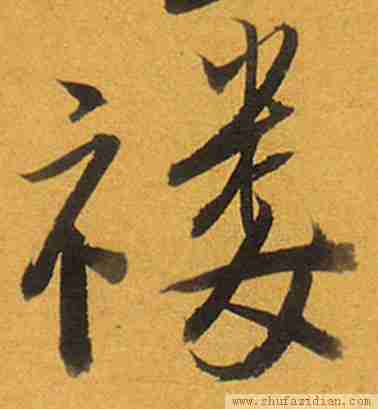 褛
www.shufazidian.com